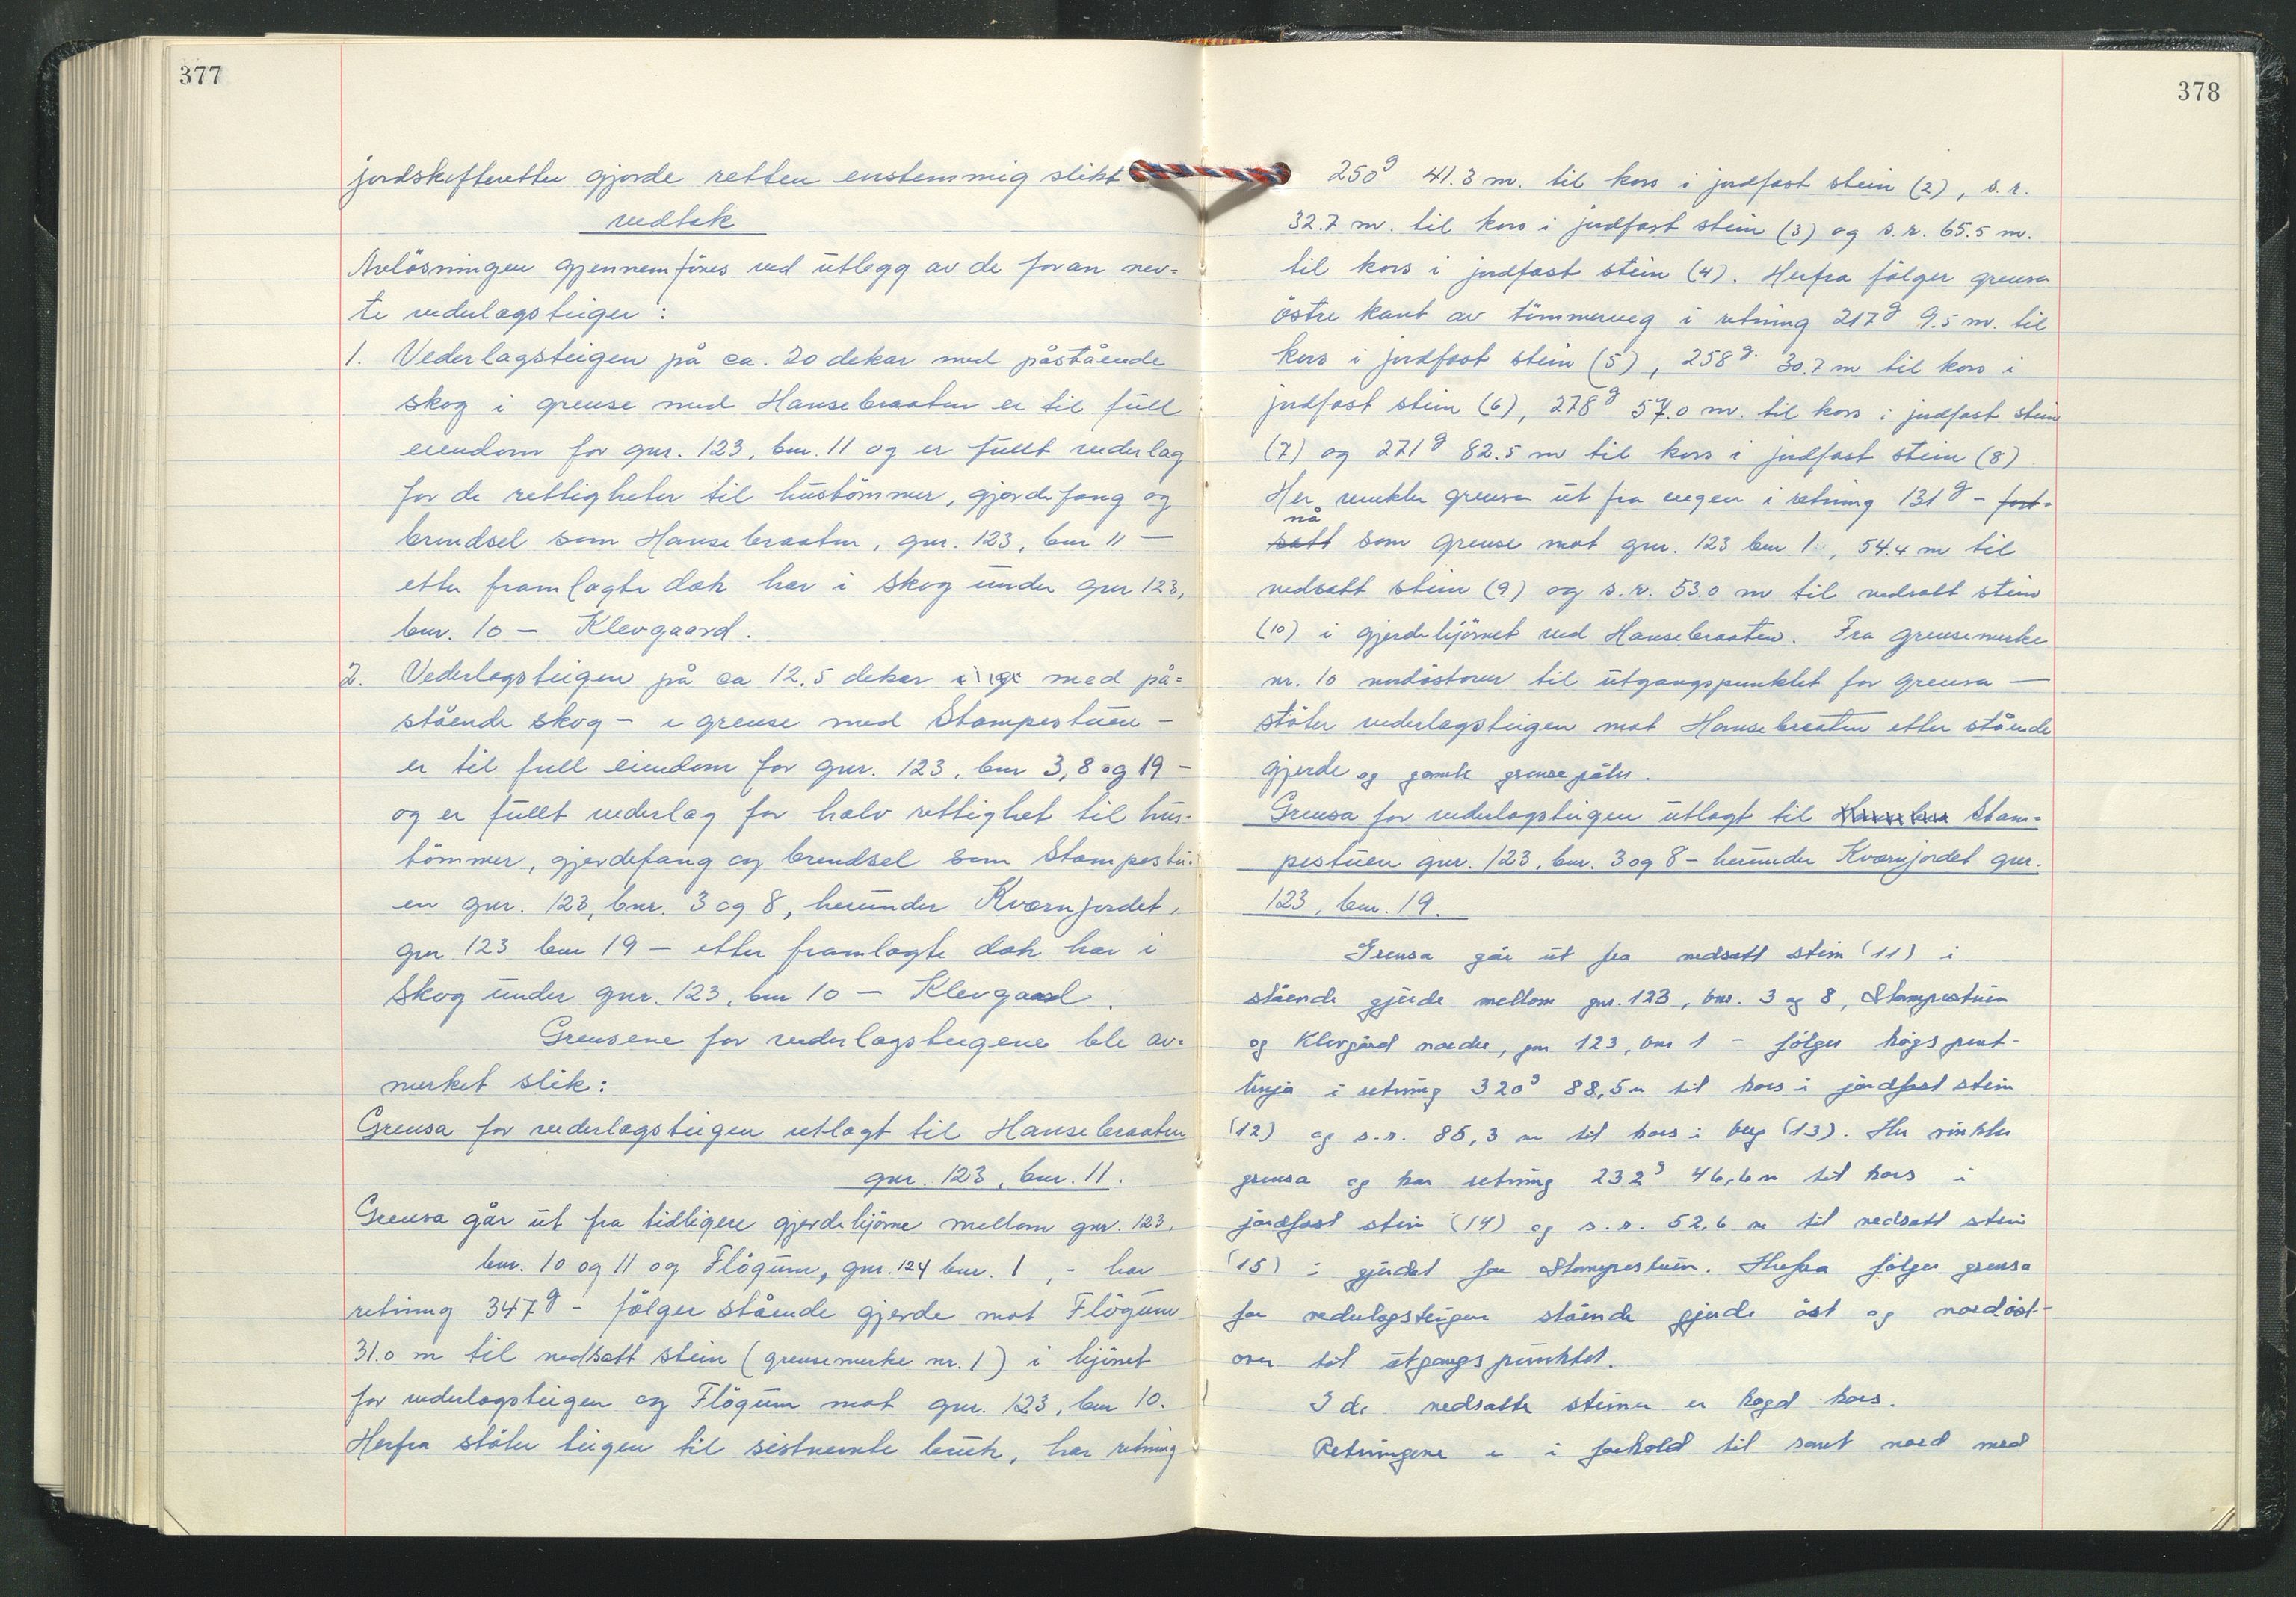 377
jordskifteretten gjorde retten enstemmig slikt
vedtak
Avlösningen gjennemföres ved utlegg av de foran nev=
te vederlagsteiger:
1. Vederlagsteigen på ca. 20 dekar med påstående
skog i grense med Hansebraaten er til full
eiendom for gnr. 123, bnr. 11 og er fullt vederlag
for de rettigheter til hustömmer, gjerdefang og
brendsel som Hansebraaten, gnr. 123, bnr 11 —
etter framlagte dok har i skog under gnr 123,
bnr. 10 — Klevgaard.
2. Vederlagsteigen på ca 12.5 dekar med på=
stående skog - i grense med Stampestuen -
er til full eiendom for gnr. 123, bnr 3, 8 og 19 -
og er fullt vederlag for halv rettighet til hus-
tömmer, gjerdefang og brendsel som Stampestu-
en gnr. 123, bnr. 3 og 8, herunder Kværnjordet,
gnr 123 bnr 19 — etter framlagte dok har i
skog under gnr. 123, bnr 10 — Klevgaard.
Grensene for vederlagsteigene ble av-
merket slik:
Grensa for vederlagsteigen utlagt til Hansebraaten
gnr. 123, bnr. 11.
Grensa går ut fra tidligere gjerdehjörne mellom gnr. 123,
bnr. 10 og 11 og Flögum, gnr. 124 bnr. 1, - har
retning 347g - fölger stående gjerde mot Flögum
31.0 m til nedsatt stein (grensemerke nr. 1) i hjörnet
for vederlagsteigen og Flögum mot gnr. 123, bnr 10.
Herfra stöter teigen til sistnevnte bruk, har retning
378
250g 41.3 m. til kors i jordfast stein (2), s. r.
32.7 m. til kors i jordfast stein (3) og s. r. 65.5 m.
til kors i jordfast stein (4). Herfra fölger grensa
östre kant av tömmerveg i retning 217g 9.5 m. til
kors i jordfast stein (5), 258g. 30.7 m til kors i
jordfast stein (6), 278g 57.0 m. til kors i jordfast stein
(7) og 271g 82.5 m til kors i jordfast stein (8)
Her vinkler grensa ut fra vegen i retning 131g - fort-
nå
satt som grense mot gnr. 123 bnr 1, 54.4 m til
nedsatt stein (9) og s. r. 53.0 m til nedsatt stein
(10) i gjerdehjörnet ved Hansebraaten. Fra grensemerke
nr. 10 nordöstover til utgangspunktet for grensa —
stöter vederlagsteigen mot Hansebraaten etter stående
gjerde og gamle grensepåler.
Grensa for vederlagsteigen utlagt til Stam=
pestuen gnr. 123, bnr. 3 og 8 - herunder Kværnjordet gnr.
123, bnr. 19.
Grensa går ut fra nedsatt stein (11) i
stående gjerde mellom gnr. 123, bnr. 3 og 8, Stampestuen
og Klevgård nordre, gnr 123, bnr 1 - fölger högspent-
linja i retning 320g 88,5 m til kors i jordfast stein
(12) og s. r. 85,3 m til kors i berg (13). Her vinkler
grensa og har retning 232g 46,6 m til kors i
jordfast stein (14) og s. r. 52,6 m til nedsatt stein
(15) i gjerdet for Stampestuen. Herfra fölger grensa
for vederlagsteigen stående gjerde öst og nordöst-
over til utgangspunktet.
I de nedsatte steiner er hogd kors.
Retningene er i forhold til sant nord med